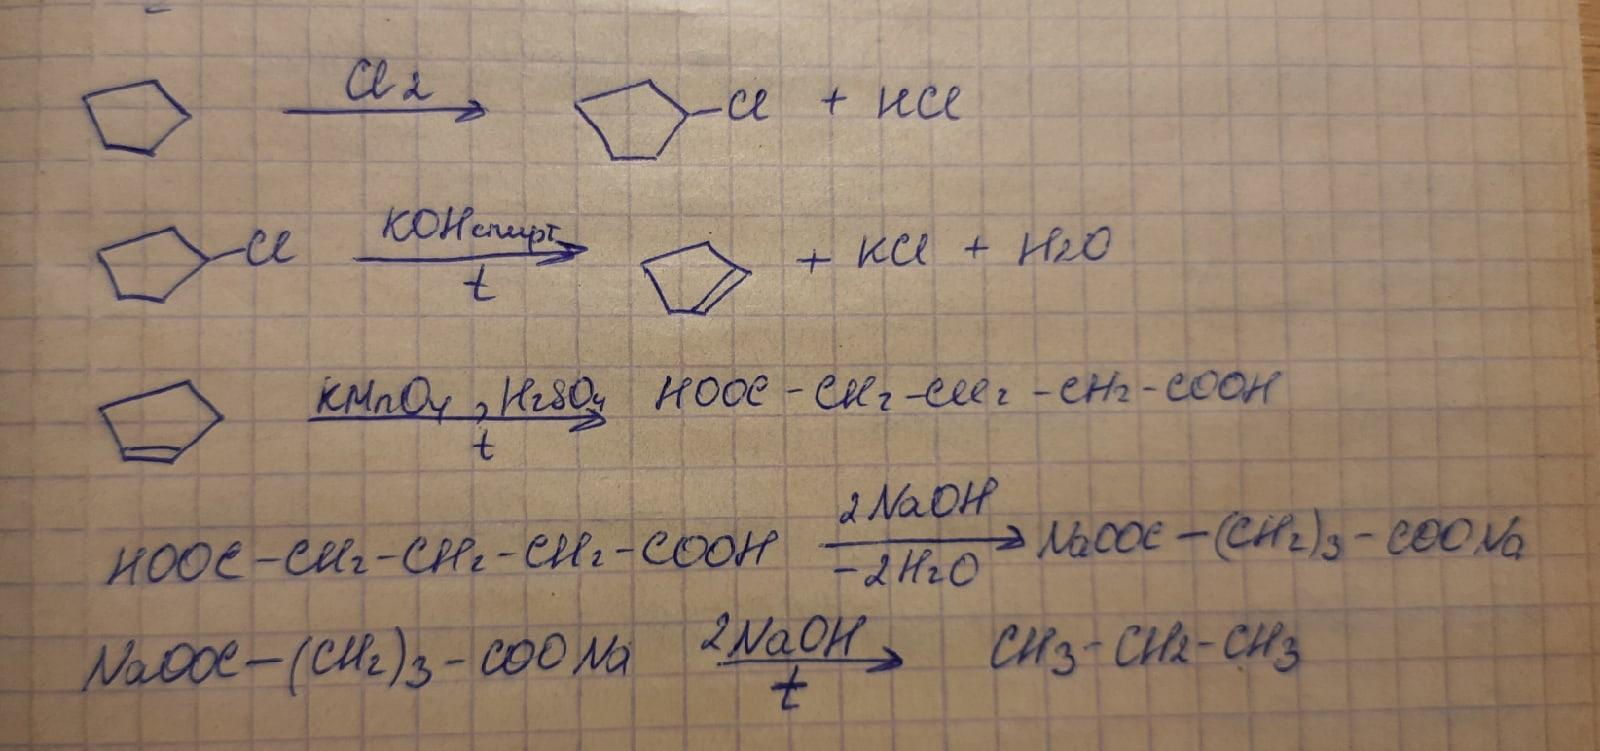 Cl2 Cl + HCl
Cl KOH спирт t + KCl + H2O
KMnO4, H2SO4 t HOOC-CH2-CH2-CH2-COOH
HOOC-CH2-CH2-CH2-COOH 2NaOH -2H2O NaOOC-(CH2)3-COONa
NaOOC-(CH2)3-COONa 2NaOH t CH3-CH2-CH3